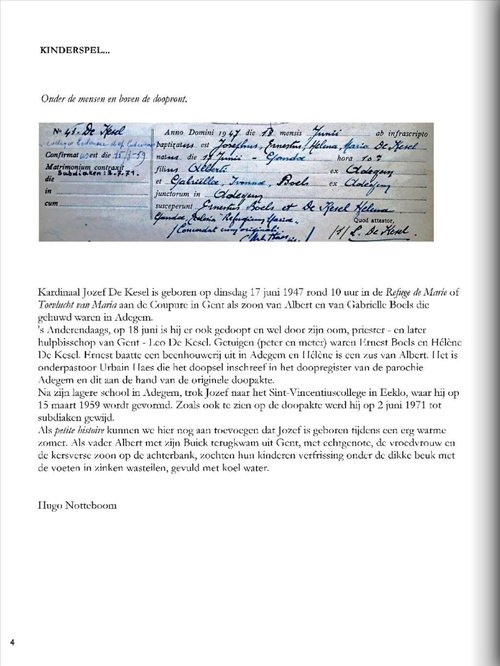 KINDERSPEL...
Onder de mensen en boven de doopront.
Nº 45. De Kesel Anno Domini 1947 die 18 mensis Junii ab infrascripto
baptizatus est Josephus, Ernestus, Helena Maria De Kesel
Confirmat est die 15/3/59 natus die 17 Junii - Gandae hora 10 ?
Matrimonium contraxit filius Alberti ex Adegem
die Subdiaken 2.6.71.
et et Gabriella Ivonna Boels ex Adegem
in junctorum in Adegem
cum susceperunt Ernestus Boels et De Kesel Helena
Gandae, Refugium Mariae. Quod attestor,
(Concordat cum originali (s) L. De Kesel
Kardinaal Jozef De Kesel is geboren op dinsdag 17 juni 1947 rond 10 uur in de Refuge de Marie of
Toevlucht van Maria aan de Coupure in Gent als zoon van Albert en van Gabrielle Boels die
gehuwd waren in Adegem.
's Anderendaags, op 18 juni is hij er ook gedoopt en wel door zijn oom, priester - en later
hulpbisschop van Gent - Leo De Kesel. Getuigen (peter en meter) waren Ernest Boels en Hélène
De Kesel. Ernest baatte een beenhouwerij uit in Adegem en Hélène is een zus van Albert. Het is
onderpastoor Urbain Haes die het doopsel inschreef in het doopregister van de parochie
Adegem en dit aan de hand van de originele doopakte.
Na zijn lagere school in Adegem, trok Jozef naar het Sint-Vincentiuscollege in Eeklo, waar hij op
15 maart 1959 wordt gevormd. Zoals ook te zien op de doopakte werd hij op 2 juni 1971 tot
subdiaken gewijd.
Als petite histoire kunnen we hier nog aan toevoegen dat Jozef is geboren tijdens een erg warme
zomer. Als vader Albert met zijn Buick terugkwam uit Gent, met echtgenote, de vroedvrouw en
de kersverse zoon op de achterbank, zochten hun kinderen verfrissing onder de dikke beuk met
de voeten in zinken wasteilen, gevuld met koel water.
Hugo Notteboom
4